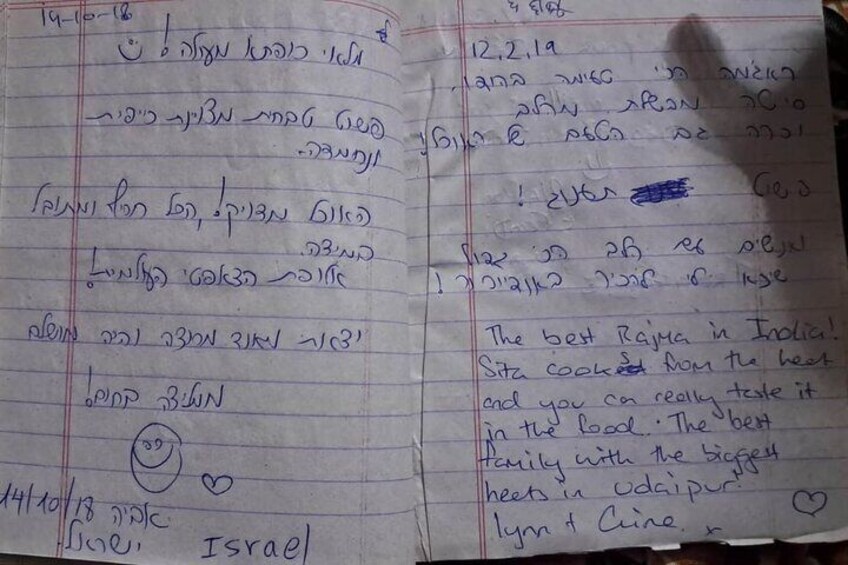 19-10-18
מלאי כופתא מעולה!
פשוט טבחית מצויינת כייפית
ונחמדה.
האוכל מדוייק!, הכל חריף ומתובל
במידה.
אלופת הצ'אפטי העולמית!
יצאתי מאוד מרוצה והיה מושלם
ממליצה בחום!
14/10/18 אביה
ישראל Israel
12.2.19
ראג'מה הכי טעימה בהודו.
סיטה מבשלת מהלב
וככה גם הטעם של האוכל!
פשוט תענוג!
אנשים עם הלב הכי גדול
שיצא לי להכיר באודייפור!
The best Rajma in India!
Sita cooks from the heet
and you can really taste it
in the food. The best
family with the biggest
heets in Udaipur!
Lynn +